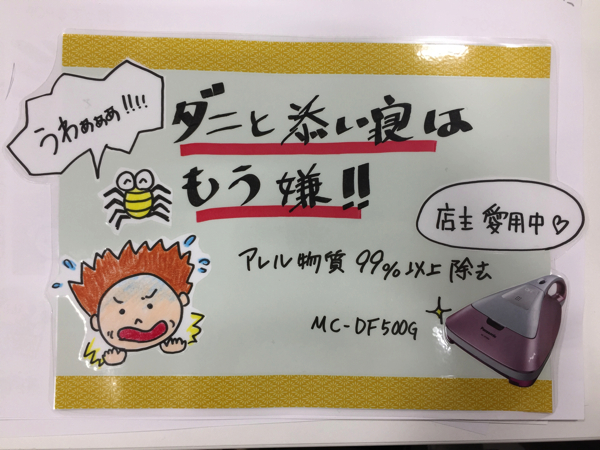 うわぁぁぁ!!!!
ダニと添い寝は
もう嫌!!
店主愛用中♡
アレル物質99%以上除去
MC-DF500G
Panasonic